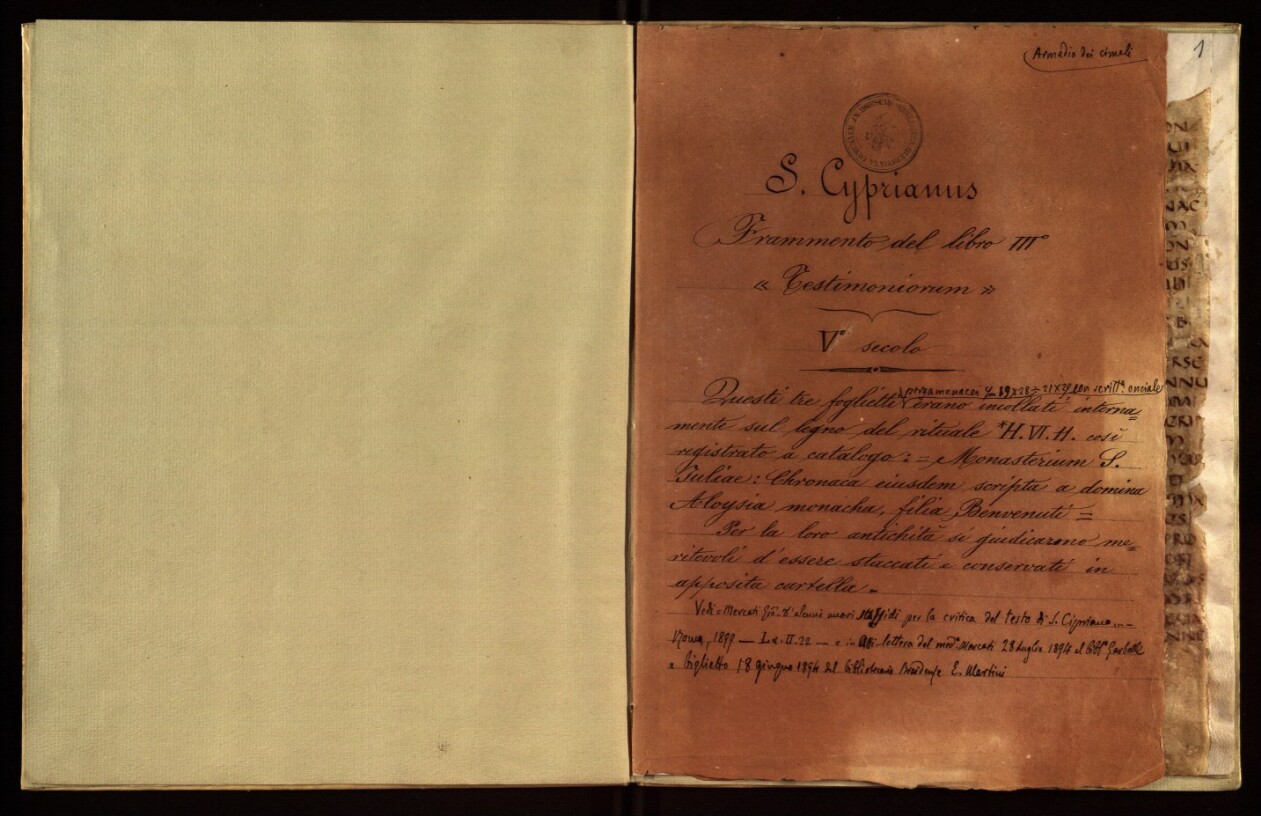 Armadio dei cimeli
1
S. Cyprianus
Frammento del libro III°
« Testimoniorum »
V° secolo
pergamenacei con scritt.ª onciale
Questi tre foglietti erano incollati interna=
mente sul legno del rituale *H. VI. 11. così
registrato a catalogo: = Monasterium S.
Iuliae: Chronaca eiusdem scripta a domina
Aloysia monacha, filia Benvenuti =
Per la loro antichità si giudicarono me=
ritevoli d'essere staccati e conservati in
apposita cartella.
Vedi = Mercati d'alcuni nuovi sussidi per la critica del testo di S. Cipriano...
Roma, 1899 — Lx. II. 22 — e in lettera del med.º Mercati 28 luglio 1894 al
e biglietto 18 giugno 1894 del bibliotecario Braidense E. Martini